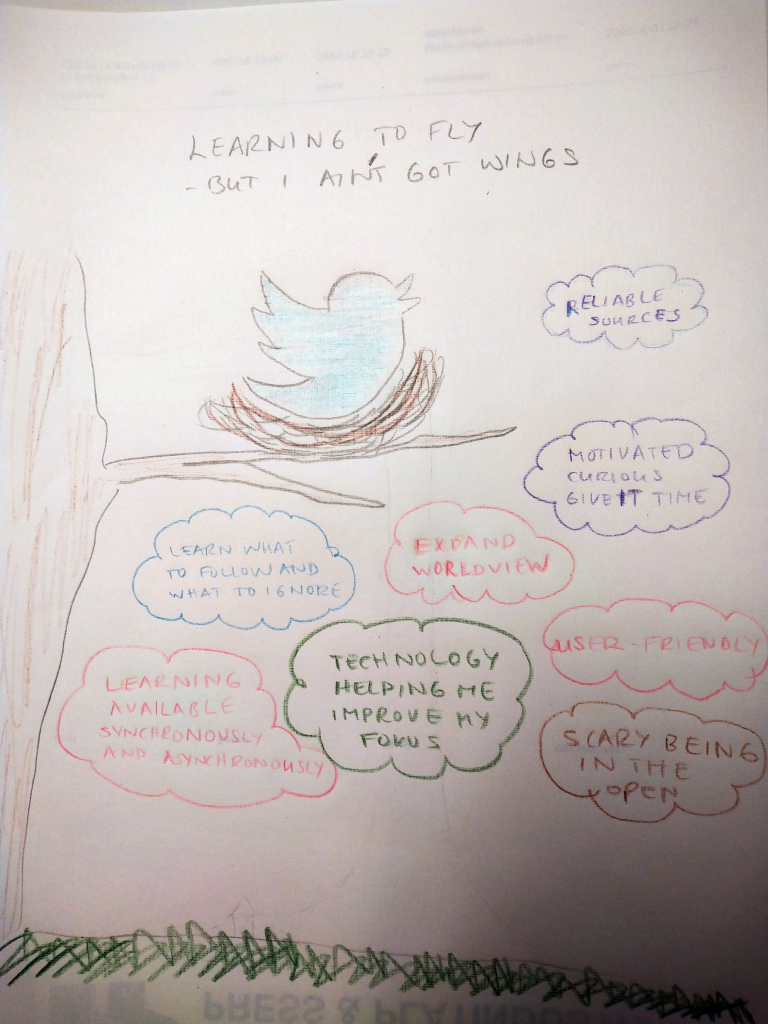 LEARNING TO FLY
- BUT I AIN'T GOT WINGS
RELIABLE
SOURCES
MOTIVATED
CURIOUS
GIVE IT TIME
LEARN WHAT
TO FOLLOW AND
WHAT TO IGNORE
EXPAND
WORLDVIEW
USER-FRIENDLY
LEARNING
AVAILABLE
SYNCHRONOUSLY
AND ASYNCHRONOUSLY
TECHNOLOGY
HELPING ME
IMPROVE MY
FOKUS
SCARY BEING
IN THE
OPEN
PRESS & PLATINUM